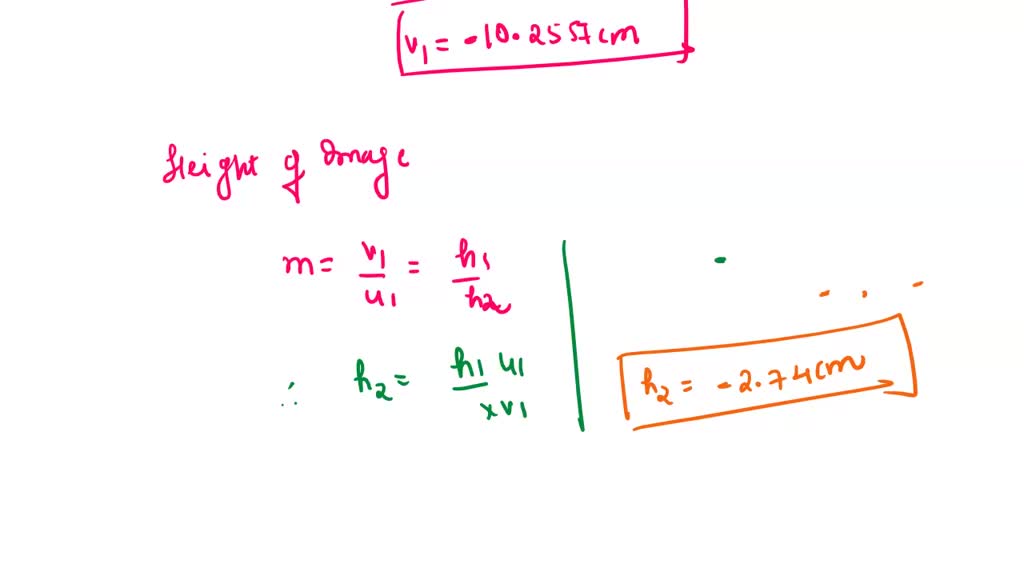 v₁ = -10.2557 cm
Height of Image
m = v₁/u₁ = h₁/h₂
∴ h₂ = h₁ u₁/xv₁
h₂ = -2.74 cm